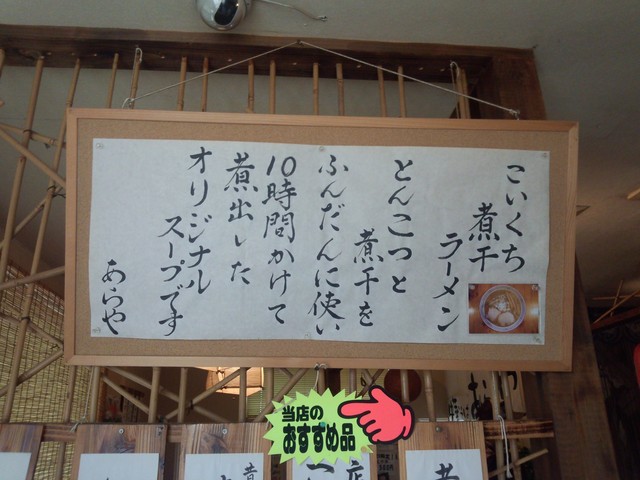 こいくち
煮干
ラーメン
とんこつと
煮干を
ふんだんに使い
10時間かけて
煮出した
オリジナル
スープです
あらや
当店の
おすすめ品